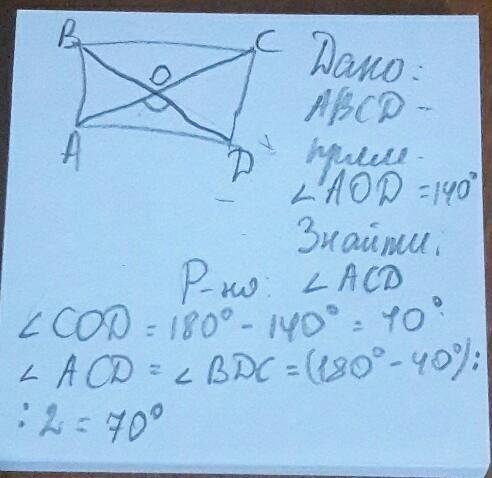 B
C
O
A
D
Дано:
ABCD -
прям.
∠AOD = 140°
Знайти.
∠ACD
Р-но:
∠COD = 180° - 140° = 40°
∠ACD = ∠BDC = (180° - 40°) :
: 2 = 70°